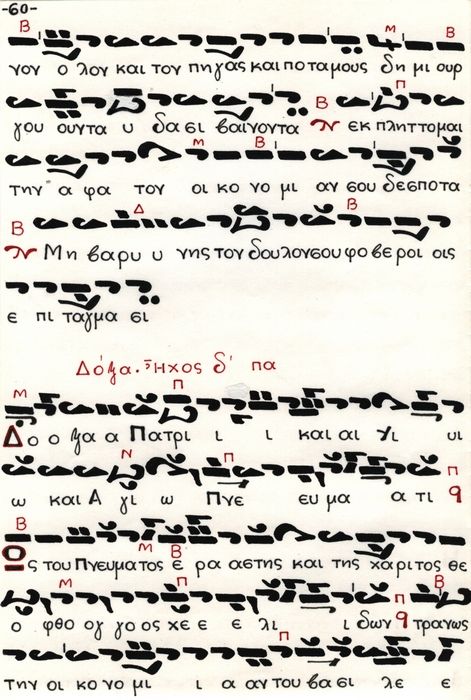 -60-
Β Μ Β
νον ο λον και τον πηγας και ποταμους δη μι ουρ
Π
γου ουντα υ δα σι βαινοντα Β εκ πληττομαι
Μ Β
την α φα τον οι κο νο μι αν σου δεσποτα
Β Δ Β
Μη βαρυ υ νης τον δουλον σου φο βε ροι οις
ε πι ταγμα σι
Δόξα. Ἦχος δ' πα
Μ Π
Δο ο ξα α Πατρι ι ι και αι Υι υι
Ν Π Π
ω και Α γι ω Πνε ευ μα α τι q
Β Μ Β
Ος του Πνευματος ε ρα αστης και της χαριτος θε
Μ Π Π Β
ο φθο ογ γο ος χε ε ε λι ι δων q τρανως
Π Μ
την οι κο νο μι ι α αν του βα σι λε ε